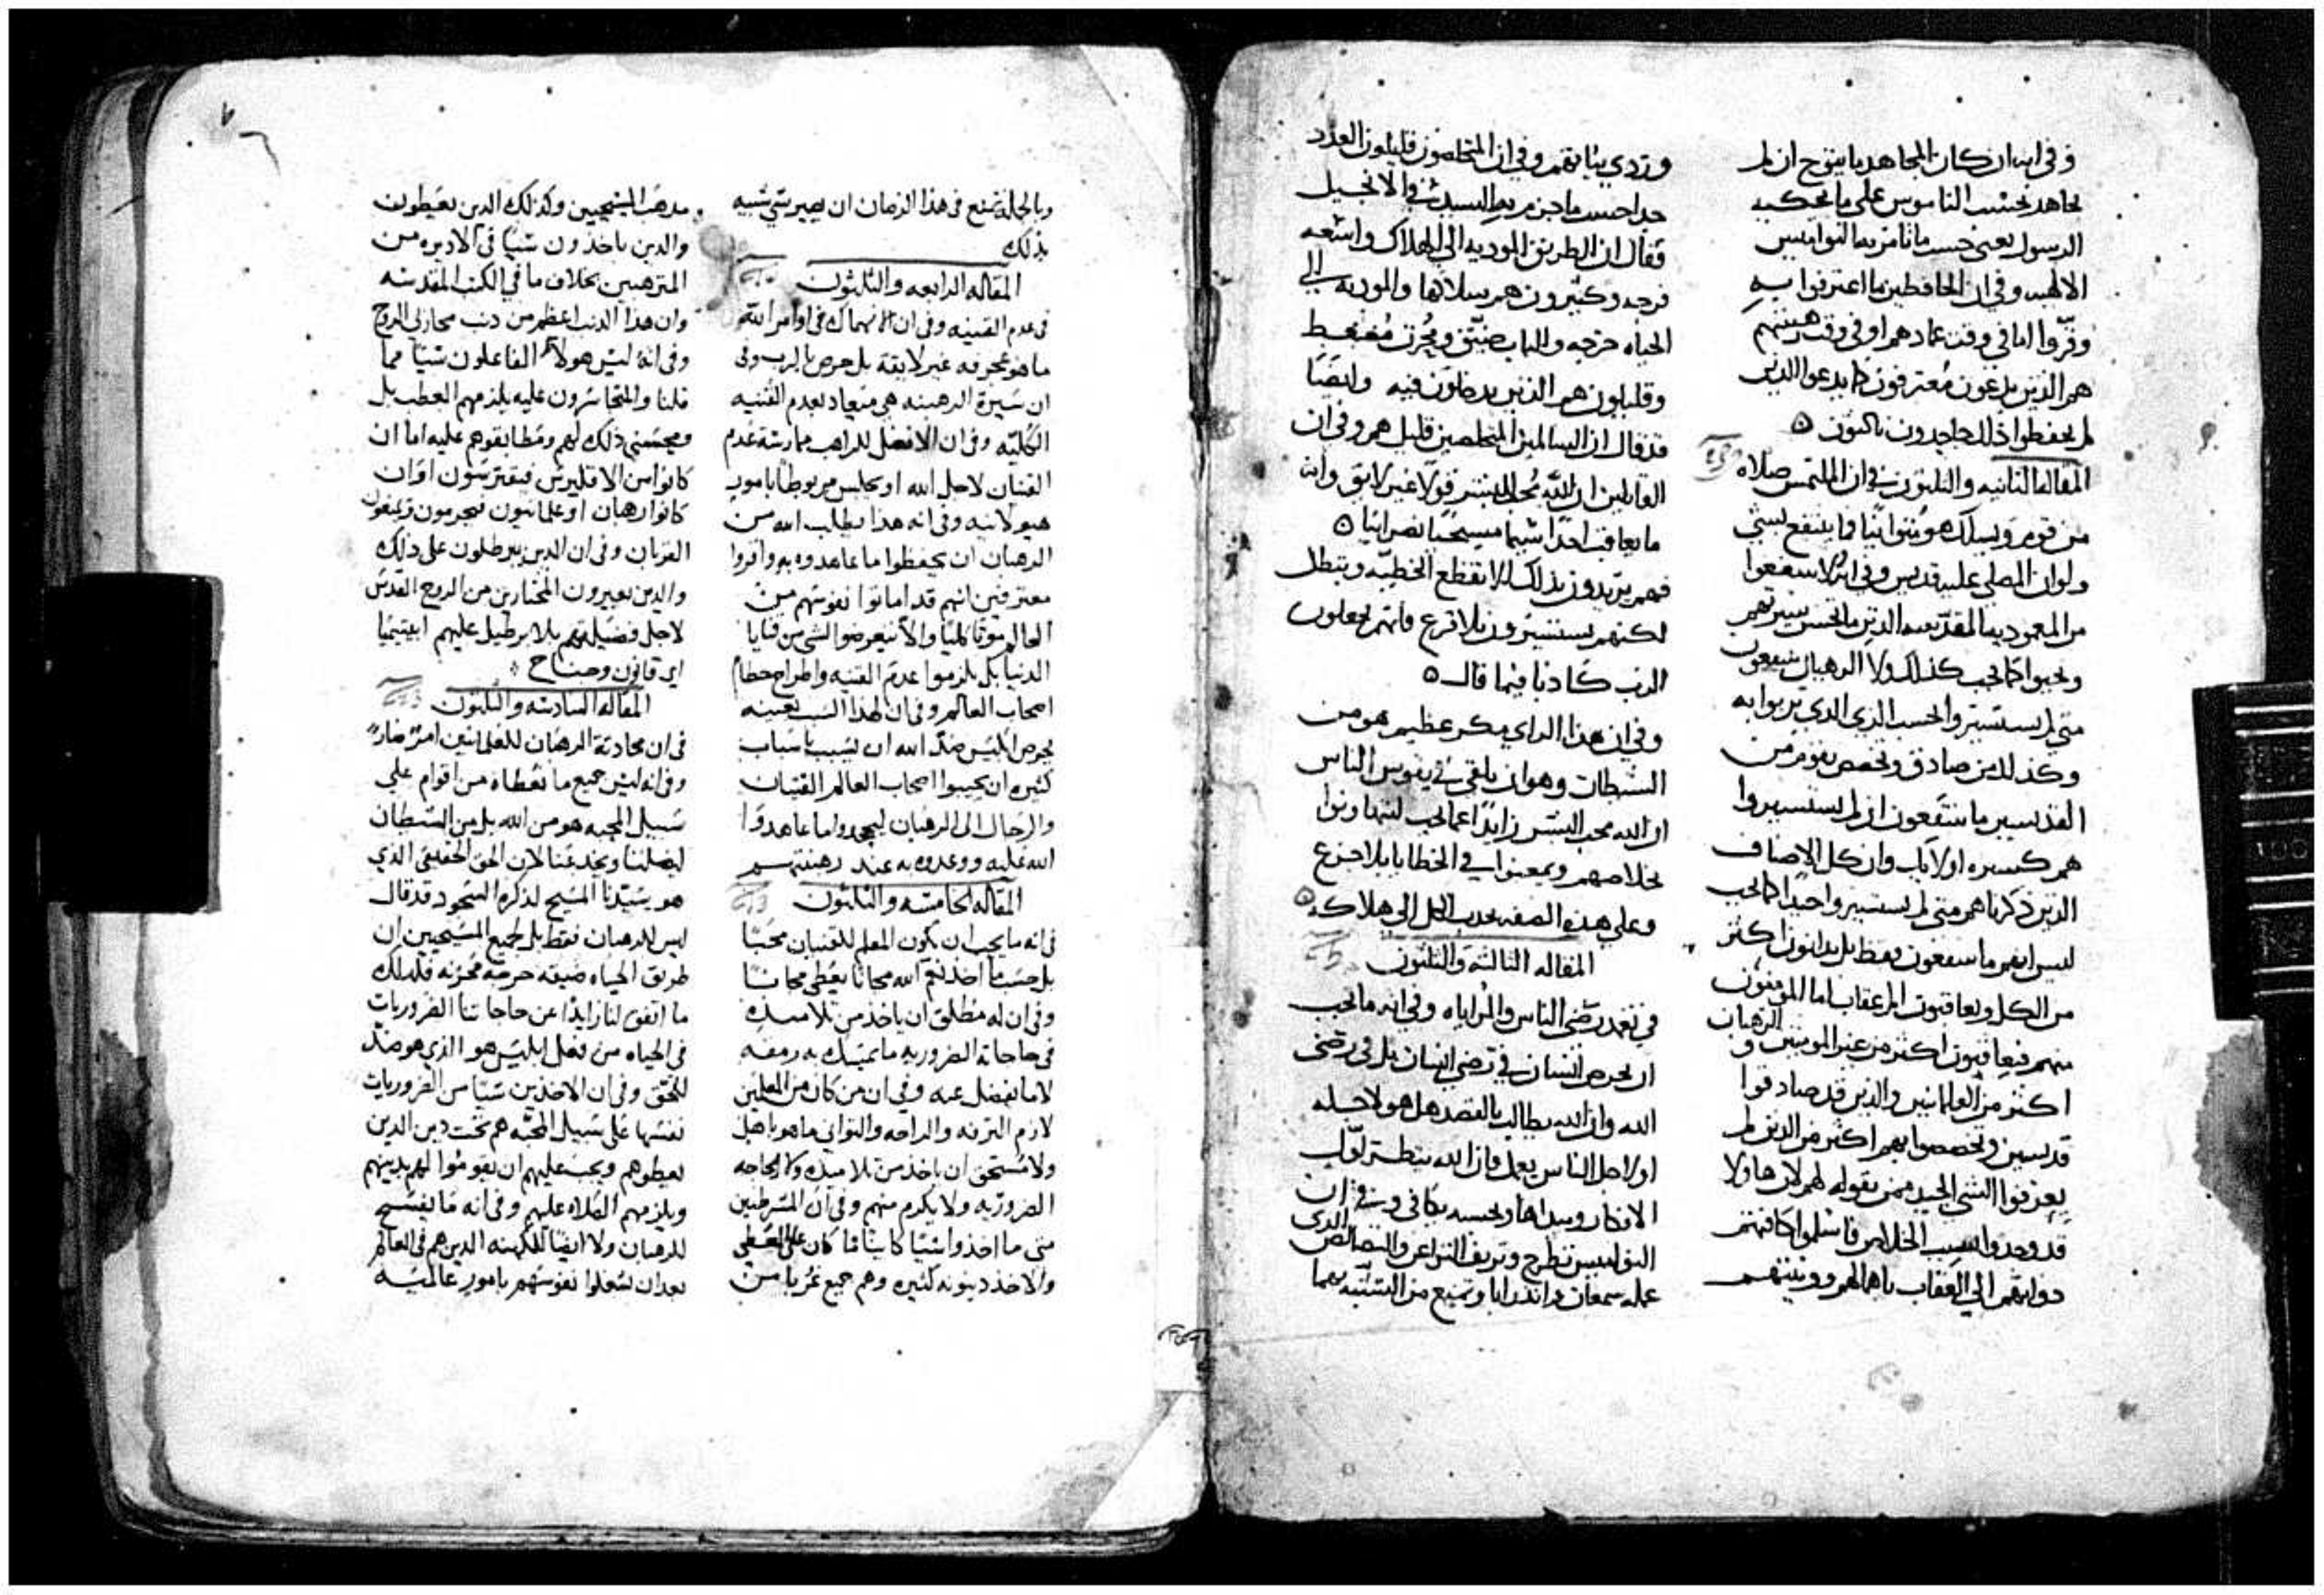 وفي انه ان كان المجاهد ما يتوج ان لم
يجاهد بحسب الناموس على ما يحكيه
الرسول يعني حسب ما تامر به النواميس
الالهيه وفي ان الحافظين ما اعترفوا به
وقرّوا اما في وقت عمادهم او في وقت رهبنتهم
هم الذين يدعون معترفون كما يدعوا الذين
لم يحفظوا ذلك جاحدون ناكثون
المقاله الثانيه والثلثون في ان الملتمس صلاه
من قوم ويسلك هو متوانيًا فما ينتفع بشي
ولو ان المصلي عليه قديس وفي انه لا ينتفعوا
من المعموديه المقدسه الذين ما تحسن سيرتهم
ويحيوا كما يجب كذلك ولا الرهبان ينتفعون
متى لم يستسيروا بحسب الزي الذي تزيوا به
وكذلك من صادق وتخصص بقوم من
القديسين ما ينتفعون ان لم يستسيروا
هم كسيره اولايك وان كل الاصناف
الذين ذكرناهم متى لم يستسيروا حيدًا كما يجب
ليس انهم ما ينتفعون فقط بل يدانون اكثر
من الكل ويعاقبون المر عقاب اما المومنون
منهم فيعاقبون اكثر من غير المومنين والرهبان
اكثر من العلمانيين والذين قد صادقوا
قديسين وتخصصوا بهم اكثر من الذين لم
يعرفوا الشي الجيد ممن يقوله لهم لان هاولا
قد وجدوا سبب الخلاص فاسلموا كافتهم
ذواتهم الي العقاب باهمالهم وونيتهم
وتردي بثباتهم وفي ان المتخلصون قليلون العدد
جدا حسب ما جزم به السيد في الانجيل
فقال ان الطريق الموديه الى الهلاك واسعه
فرحه وكثيرون هم سلاكها والموديه الي
الحياه حرجه والباب ضيّق ومحزن مضغط
وقليلون هم الذين يدخلون فيه وايضًا
قد قال ان السالمين المتخلصين قليل هم وفي ان
القايلين ان الله محب للبشر قولًا غير لايق وانه
ما يعاقب احدًا سيما مسيحيًا نصرانيًا
فهم يريدون بذلك الا تقطع الخطيه وتبطل
لكنهم يستسيرون بلا فزع فانهم يجعلون
الرب كاذبا فيما قال
وفي ان هذا الراي مكر عظيم هو من
الشيطان وهو ان يلقي في نفوس الناس
ان الله محب البشر زايدًا عما يجب ليتهاونوا
بخلاصهم ويمعنوا في الخطايا بلا جزع
وعلى هذه الصفه يجذب الكل الي هلاكه
المقاله الثالثه والثلثون
في تعمد رضى الناس والمراياه وفي انه ما يجب
ان يحرص انسان في رضى انسان بل في رضى
الله وان الله يطالب بالقصد هل هو لاجله
او لاجل الناس يعمل فان الله ينظر لوّاب
الافكار ومبداها وبحسبه يكافي وفي ان
النواميس تطرح وتزيف النزاعر والنصالص الذي
عمله سمعان واندرايا وتمنع من التشبه بهما
وبالجمله تمنع في هذا الزمان ان يصير شي شبيه
بذلك
المقاله الرابعه والثلثون
في عدم القنيه وفي ان الانهماك في اوامر الله
ما هو عجرفه غير لايقة بل حرص بالرب وفي
ان سيرة الرهبنه هي ميعاد لعدم القنيه
الكليّه وفي ان الافضل للراهب ممارسة عدم
القنيان لاجل الله او يجلس مربوطًا بامور
هيولانيه وفي انه هذا يطلب الله من
الرهبان ان يحفظوا ما عاهدوا به واقروا
معترفين انهم قد اماتوا نفوسهم من
العالم موتًا كليًا والا يتعرضوا لشي من قنايا
الدنيا بل يلزموا عدم القنيه واطراح حطام
اصحاب العالم وفي ان لهذا السبب بعينه
يحرص ابليس ضدّ الله ان يسبب باسباب
كثيره ان يجيبوا اصحاب العالم القنيان
والرحال الى الرهبان ليجحدوا ما عاهدوا
الله عليه ووعدوه به عند رهبنتهم
المقاله الخامسه والثلثون
في انه ما يجب ان يكون المعلم للقنيان محبًا
بل حسب ما اخذ نعم الله مجانًا يعطي مجانًا
وفي ان له مطلق ان ياخذ من تلاميذه
في حاجاته الضروريه ما يمسك به رمقه
لا ما يفضل عنه وفي ان من كان من المعلمين
لازم الترفه والراحه والتواني ما هو باهل
ولا مستحق ان ياخذ من تلاميذه ولا الحاجه
الضروريّه ولا يكرم منهم وفي ان المشرطنين
متى ما اخذوا شيًا كاينًا ما كان على المعطي
والاخذ دينونه كثيره وهم جميع غربا من
مدهب المسيحيين وكذلك الدين يعيطون
والدين ياخذون شيًا في الاديره من
المترهبين بخلاف ما في الكتب المقدسه
وان هذا الذنب اعظم من ذنب محاربي الروح
وفي انه ليس هولاء الفاعلون شيًا مما
قلنا والمتجاسرون عليه يلزمهم العطب بل
ومحسنى ذلك لهم ومطابقوهم عليه اما ان
كانوا من الاقليرس فيقترسون او ان
كانوا رهبان او علمانيون فيحرمون ويمنعون
القربان وفي ان الدين يبرطلون على ذلك
والدين يعيرون المختارين من الروح القدس
لاجل فضيلتهم بلا برطيل عليهم ابيتيميا
اي قانون وجناح
المقاله السادسه والثلثون
في ان محادثة الرهبان للعلمانيين امرٌ ضارٌ
وفي انه ليس جميع ما نعطاه من اقوام علي
سبيل المحبه هو من الله بل من الشيطان
ليضلنا ويخدعنا لان الحق الحقيقي الذي
هو سيّدنا المسيح لذكره السجود قد قال
ليس للرهبان فقط بل لجميع المسيحيين ان
طريق الحياه ضيقه حرجه محزنه فلذلك
ما اتفق لنا زايدًا عن حاجاتنا الضروريات
في الحياه من فعل ابليس هو الذي هو ضدّ
للحقّ وفي ان الاخذين شيًا من الضروريات
نفسها على سبيل المحبّه هم تحت دين الدين
يعطوهم ويجب عليهم ان يقوموا لهم بدينهم
ويلزمهم الصلاه عليهم وفي انه ما يفسح
للرهبان ولا ايضًا للكهنه الدين هم في العالم
بعد ان يشغلوا نفوسهم بامور عالميّه